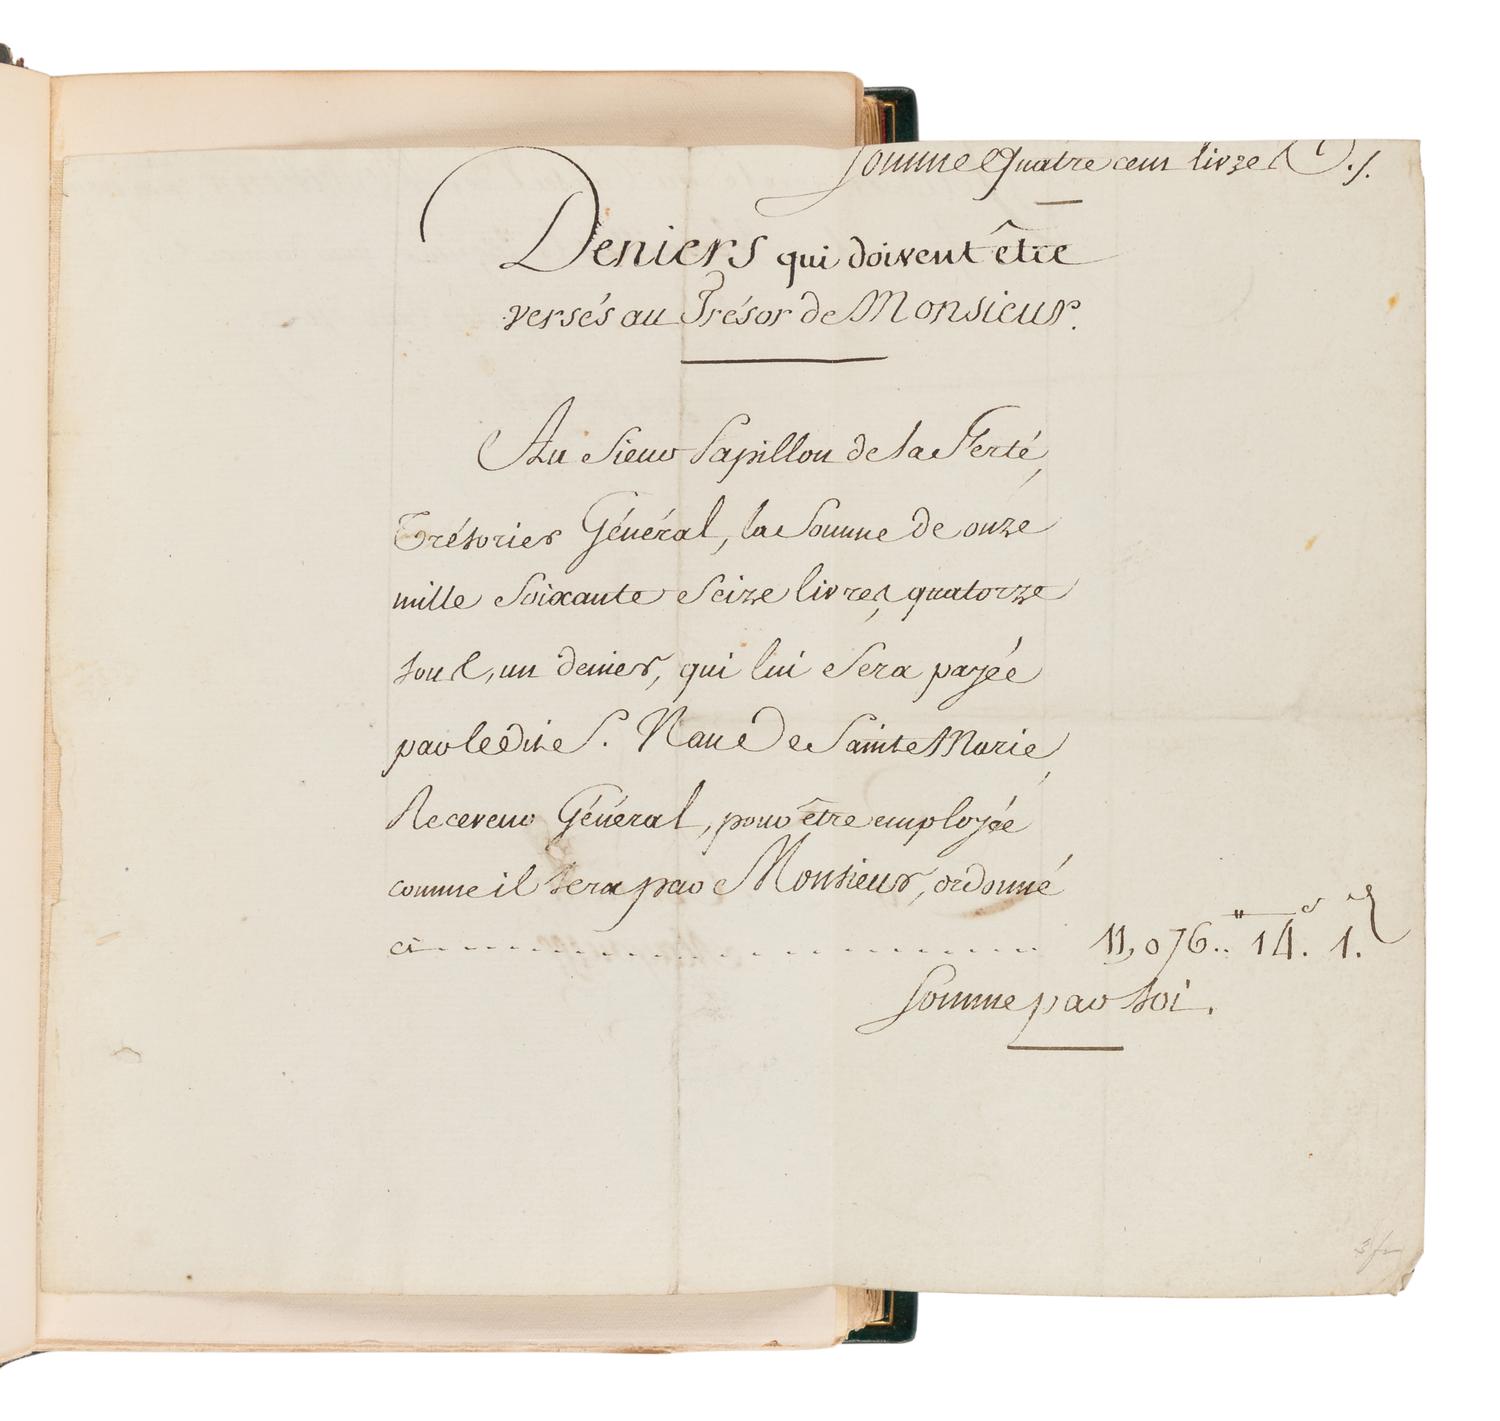 Somme Quatre cent livres
Deniers qui doivent être
versés au Trésor de Monsieur.
Au Sieur Papillon de la Ferté,
Trésorier Général, la Somme de onze
mille Soixante Seize livres, quatorze
sous, un denier, qui lui Sera payée
par ledit S. Naue De Sainte Marie,
Receveur Général, pour être employée
comme il sera par Monsieur, ordonné
ci 11,076.. 14. 1.
Somme par soi.